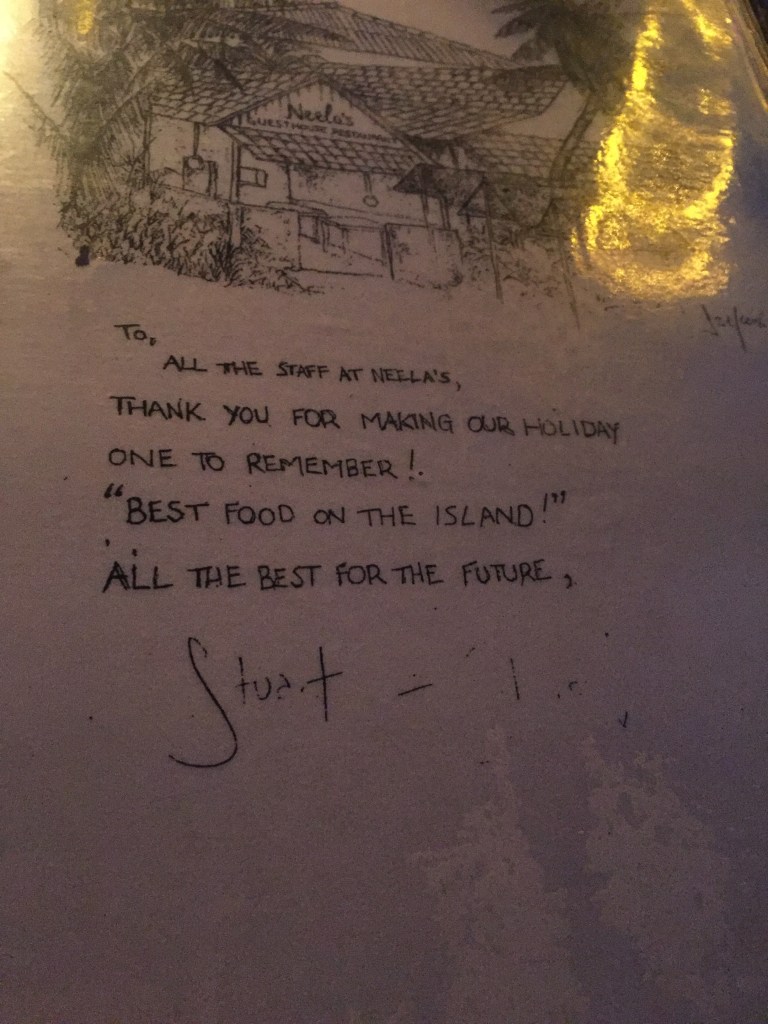 Neela's
GUESTHOUSE RESTAURANT
TO,
ALL THE STAFF AT NEELA'S,
THANK YOU FOR MAKING OUR HOLIDAY
ONE TO REMEMBER!.
"BEST FOOD ON THE ISLAND!"
ALL THE BEST FOR THE FUTURE,
Stuart -